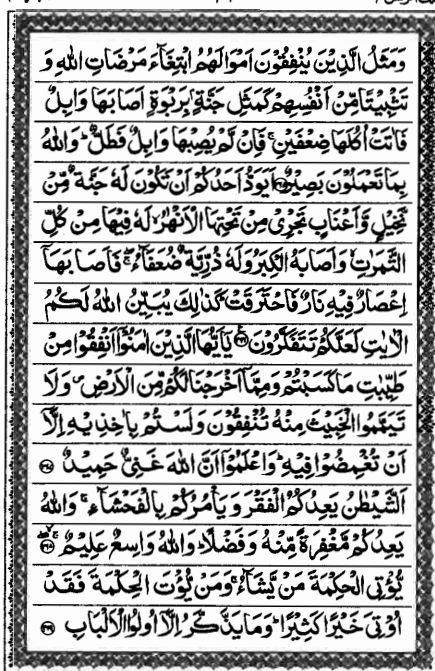 وَمَثَلُ الَّذِيْنَ يُنْفِقُوْنَ اَمْوَالَهُمُ ابْتِغَآءَ مَرْضَاتِ اللهِ وَ
تَثْبِيْتًا مِّنْ اَنْفُسِهِمْ كَمَثَلِ جَنَّةٍۭ بِرَبْوَةٍ اَصَابَهَا وَابِلٌ
فَاٰتَتْ اُكُلَهَا ضِعْفَيْنِ ۚ فَاِنْ لَّمْ يُصِبْهَا وَابِلٌ فَطَلٌّ ؕ وَاللهُ
بِمَا تَعْمَلُوْنَ بَصِيْرٌ ﴿۲۶۵﴾ اَيَوَدُّ اَحَدُكُمْ اَنْ تَكُوْنَ لَهٗ جَنَّةٌ مِّنْ
نَّخِيْلٍ وَّاَعْنَابٍ تَجْرِيْ مِنْ تَحْتِهَا الْاَنْهٰرُ ۙ لَهٗ فِيْهَا مِنْ كُلِّ
الثَّمَرٰتِ ۙ وَاَصَابَهُ الْكِبَرُ وَلَهٗ ذُرِّيَّةٌ ضُعَفَآءُ ۖ فَاَصَابَهَآ
اِعْصَارٌ فِيْهِ نَارٌ فَاحْتَرَقَتْ ؕ كَذٰلِكَ يُبَيِّنُ اللهُ لَكُمُ
الْاٰيٰتِ لَعَلَّكُمْ تَتَفَكَّرُوْنَ ﴿۲۶۶﴾ يٰۤاَيُّهَا الَّذِيْنَ اٰمَنُوْۤا اَنْفِقُوْا مِنْ
طَيِّبٰتِ مَا كَسَبْتُمْ وَمِمَّاۤ اَخْرَجْنَا لَكُمْ مِّنَ الْاَرْضِ ۪ وَلَا
تَيَمَّمُوا الْخَبِيْثَ مِنْهُ تُنْفِقُوْنَ وَلَسْتُمْ بِاٰخِذِيْهِ اِلَّاۤ
اَنْ تُغْمِضُوْا فِيْهِ ؕ وَاعْلَمُوْۤا اَنَّ اللهَ غَنِيٌّ حَمِيْدٌ ﴿۲۶۷﴾
اَلشَّيْطٰنُ يَعِدُكُمُ الْفَقْرَ وَيَاْمُرُكُمْ بِالْفَحْشَآءِ ۚ وَاللهُ
يَعِدُكُمْ مَّغْفِرَةً مِّنْهُ وَفَضْلًا ؕ وَاللهُ وَاسِعٌ عَلِيْمٌ ﴿۲۶۸﴾
يُّؤْتِي الْحِكْمَةَ مَنْ يَّشَآءُ ۚ وَمَنْ يُّؤْتَ الْحِكْمَةَ فَقَدْ
اُوْتِيَ خَيْرًا كَثِيْرًا ؕ وَمَا يَذَّكَّرُ اِلَّاۤ اُولُوا الْاَلْبَابِ ﴿۲۶۹﴾